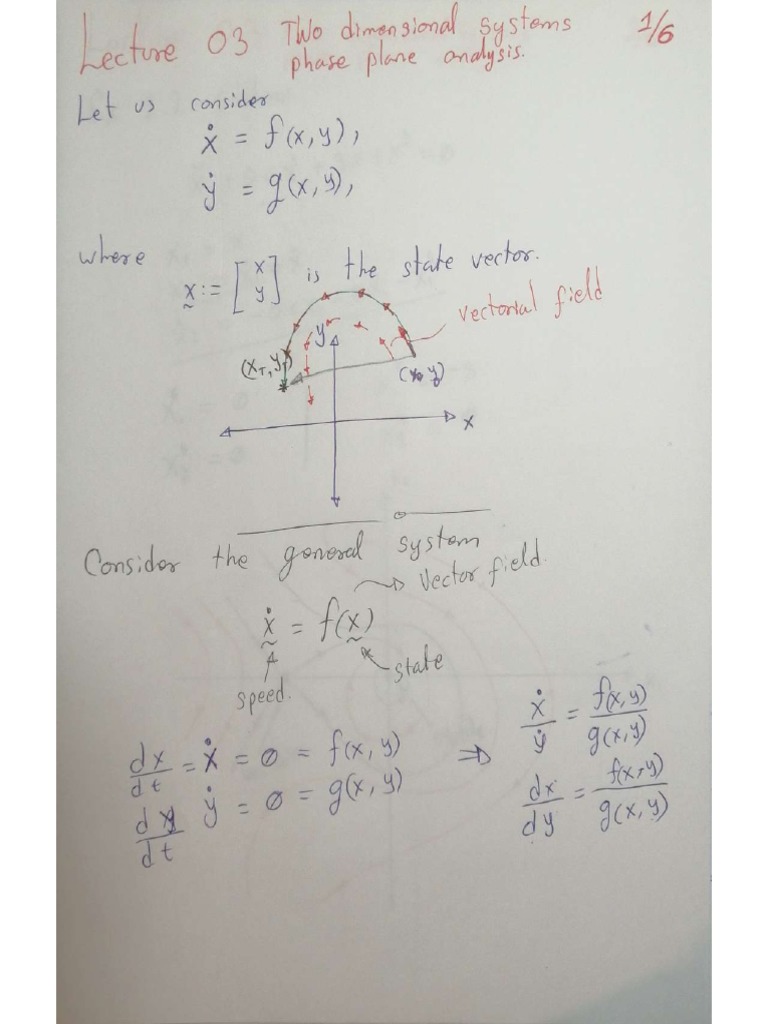 Lecture 03 Two dimensional systems 1/6
phase plane analysis.
Let us consider
ẋ = f(x,y),
ẏ = g(x,y),
where x̰ := [x y] is the state vector.
vectorial field
y
(x_T, y_T)
(x₀, y₀)
x
Consider the general system
Vector field.
ẋ̰ = f(x̰)
state
speed.
dx/dt = ẋ = 0 = f(x,y) ⇒ ẋ/ẏ = f(x,y)/g(x,y)
dy/dt ẏ = 0 = g(x,y) dx/dy = f(x,y)/g(x,y)